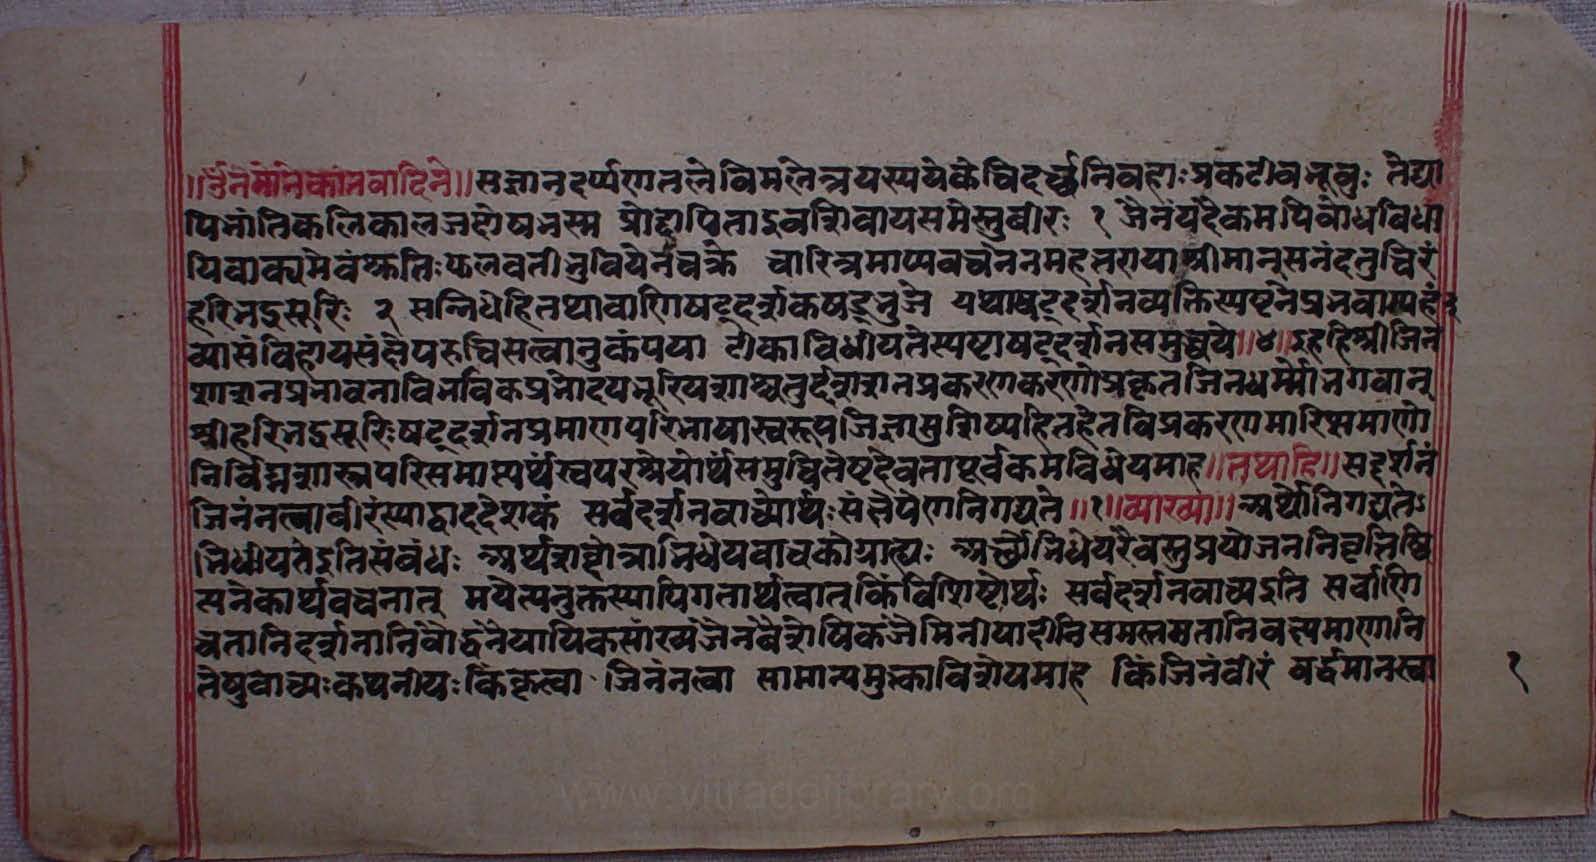 ॥ॐ नमोनेकांतवादिने॥ सज्ञानदर्प्पणतले विमलेत्र यस्य ये केचिदर्च्छनिवहाः प्रकटीबभूवुः तेद्या
पि भांति कलिकालजदोषभस्म प्रोद्दीपिता इव शिवाय स मेस्तु वीरः १ जैनं यदेकमपि बोधविधा
यि वाक्यमेवं श्रुतिः फलवती भुवि येन चक्रे चारित्रमाप्य वचनेन महत्तराया श्रीमान् स नंदतु चिरं
हरिभद्रसूरिः २ सन्निधेहि तथा वाणि षट्दर्शकषड्भुजे यथा षट्दर्शनव्यक्तिस्पष्टने प्रभवाम्यहं ३
व्यासं विहाय संक्षेपरुचिसत्वानुकंपया टीका विधीयते स्पष्टा षट्दर्शनसमुच्चये॥४॥ इह हि श्रीजिन
शाशनप्रभावनाविर्भावकप्रभोदयभूरियशाश्चतुर्दशशतप्रकरणकरणोप्रकृतजिनधर्मो भगवान्
श्रीहरिभद्रसूरिः षट्दर्शनप्रमाणपरिभाषास्वरूपजिज्ञासुशिष्यहितहेतवे प्रकरणमारिप्समाणो
निर्विघ्नशास्त्रपरिसमाप्त्यर्थं स्वपरश्रेयोर्थं समुचितेष्टदेवतापूर्वकमभिधेयमाह॥तथाहि॥सद्दर्शनं
जिनं नत्वा वीरं स्याद्वाददेशकं सर्वदर्शनवाच्योर्थः संक्षेपेण निगद्यते॥१॥व्याख्या॥ अर्थो निगद्यते ऽ
भिधीयते इति संबंधः अर्थशब्दोत्राभिधेयवाचको ग्राह्यः अर्थोभिधेयरैवस्तुप्रयोजननिवृत्तिष्वि
त्यनेकार्थवचनात् मयेत्यनुक्तस्यापि गतार्थत्वात् किं विशिष्टोर्थः सर्वदर्शनवाच्य इति सर्वाणि
च तानि दर्शनानि बौद्धनैयायिकसांख्यजैनवैशेषिकजैमिनीयादीनि समस्तमतानि वक्ष्यमाणानि
तेषु वाच्यः कथनीयः किं कृत्वा जिनं नत्वा सामान्यमुक्त्वा विशेषमाह किं जिनं वीरं वर्द्धमानस्वा
१
www.vitragelibrary.org